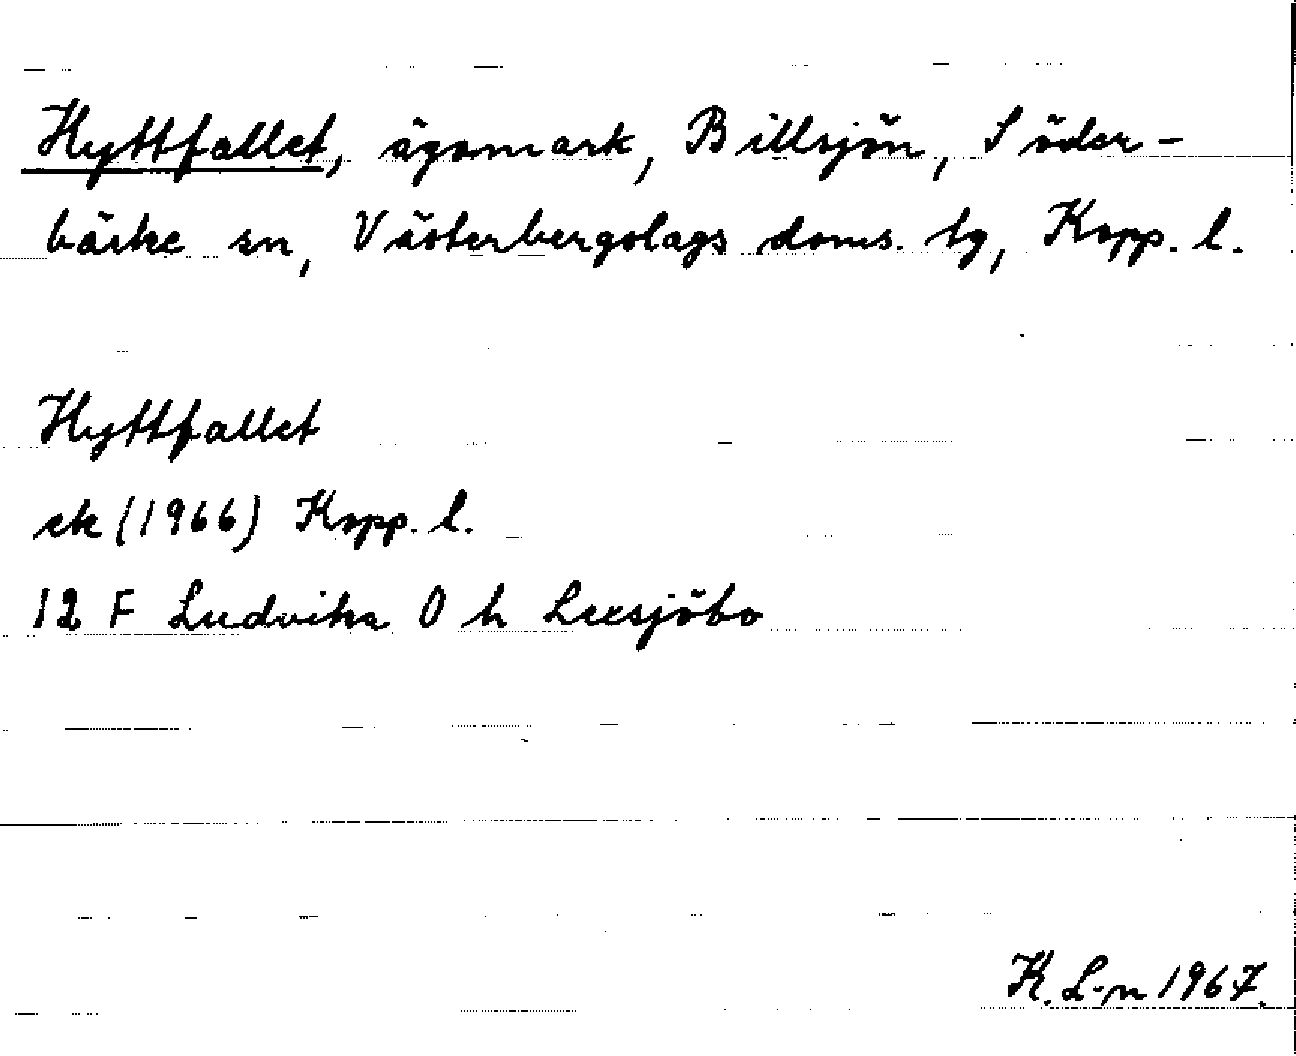 Hyttfallet, ägomark, Billsjön, Söder-
bärke sn, Västerbergslags doms. tg, Kopp. l.
Hyttfallet
ek (1966) Kopp. l.
12 F Ludvika 0 h Leesjöbo
K. L-n 1967.